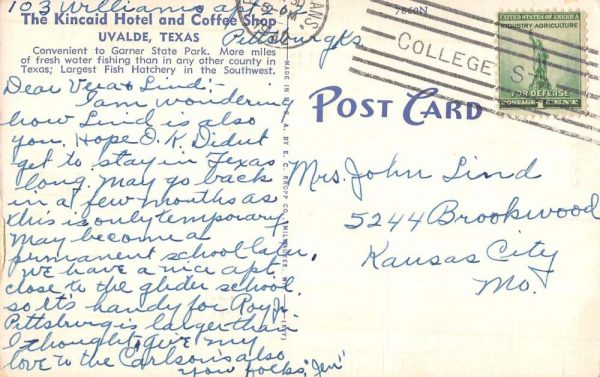 103 Williams
Pittsburg Ks
The Kincaid Hotel and Coffee Shop
UVALDE, TEXAS
Convenient to Garner State Park. More miles
of fresh water fishing than in any other county in
Texas; Largest Fish Hatchery in the Southwest.
Dear Vera & Lind:-
I am wondering
how Lind is also
you. Hope O.K. Didnt
get to stay in Texas
long. May go back
in a few months as
this is only temporary
May become a
permanent school later.
We have a nice apt.
close to the glider school.
so it's handy for Roy Jr.
Pittsburg is larger than
I thought, give my
love to the Carlson's also
you folks, "Jen"
MADE IN U.S.A. BY E. C. KROPP CO., MILWAUKEE,
7860N
POST CARD
COLLEGE ST
UNITED STATES OF AMERICA
INDUSTRY AGRICULTURE
FOR DEFENSE
POSTAGE 1 CENT
Mrs. John Lind
5244 Brookwood
Kansas City
Mo.